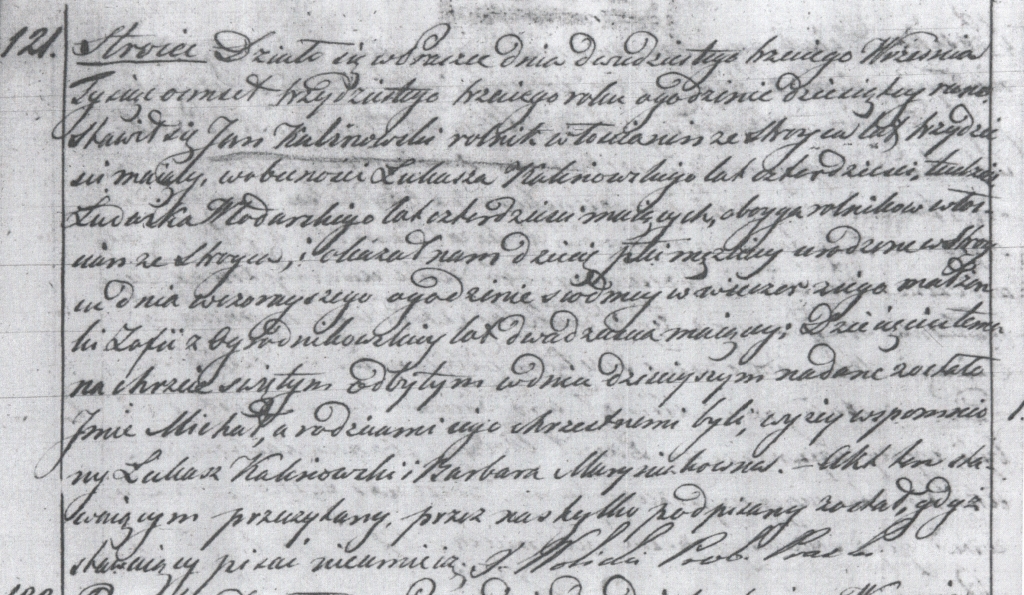 121. Stroiec Działo się w Praszce dnia dwudziestego trzeciego Września
Tysiąc ośmset trzydziestego trzeciego roku o godzinie dziesiątej rano
stawił się Jan Kalinowski rolnik włościanin ze Stroyca lat trzydzie
ści maiący, w obecności Łukasza Kalinowskiego lat czterdzieści, tudzież
Ludwika Włodarskiego lat czterdzieści maiących, oboyga rolników włoś-
cian ze Stroyca, i okazał nam dziecię płci męzkiey urodzone w Stroy
cu dnia wczorayszego o godzinie siódmey w wieczór z iego małżon
ki Zofii z Ogrodnikowskich lat dwadzieścia maiącey; Dziecięciu temu
na chrzcie świętym odbytym w dniu dzisieyszym nadane zostało
Imie Michał, a rodzicami iego chrzestnemi byli, wyżey wspomnio
ny Łukasz Kalinowski i Barbara Maryniakowna. – Akt ten sta-
waiącym przeczytany, przez nas tylko podpisany został, gdyż
stawaiący pisać nieumieią.